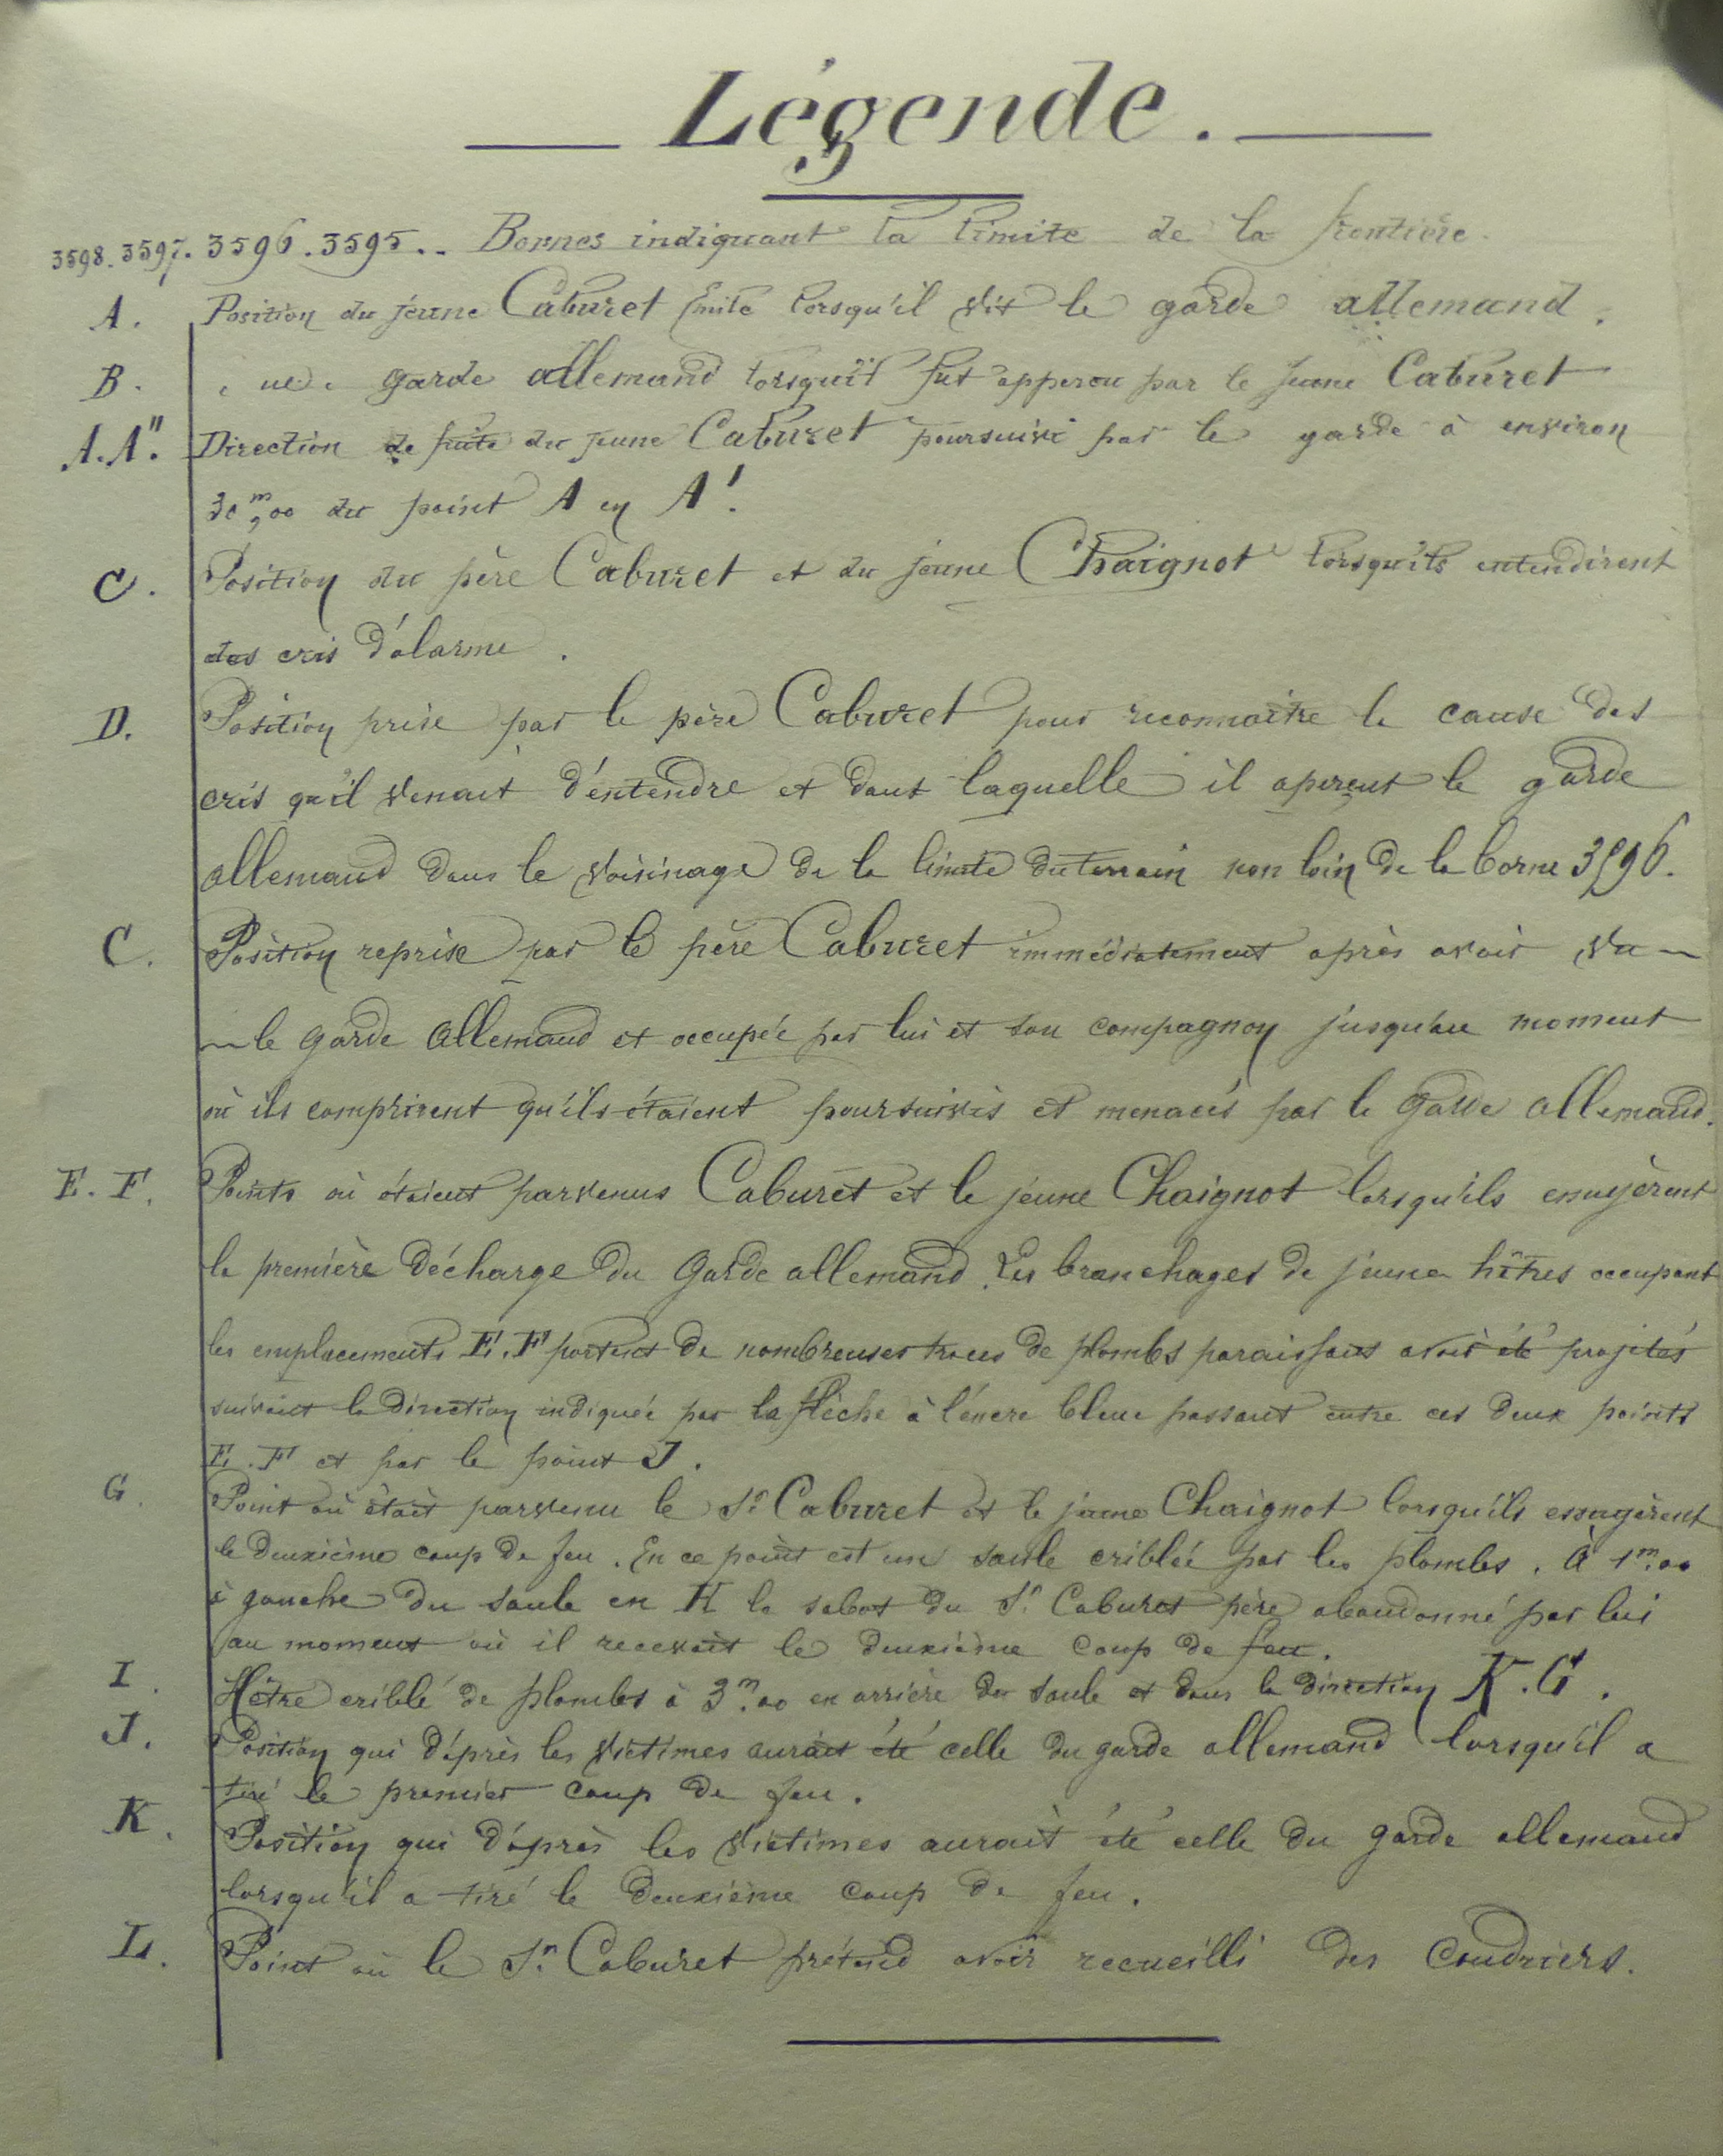 Légende.
3598. 3597. 3596. 3595.. Bornes indiquant la limite de la frontière.
A. Position du jeune Caburet Emile lorsqu'il vit le garde allemand.
B. garde allemand lorsqu'il fut apperçu par le jeune Caburet
A.A". Direction de fuite du jeune Caburet poursuivi par le garde à environ
30m,00 du point A en A'.
C. Position du père Caburet et du jeune Chaignot lorsqu'ils entendirent
des cris d'alarme.
D. Position prise par le père Caburet pour reconnaitre la cause des
cris qu'il venait d'entendre et dans laquelle il aperçut le garde
allemand dans le voisinage de la limite du terrain non loin de la borne 3596.
C. Position reprise par le père Caburet immédiatement après avoir vu
le garde allemand et occupée par lui et son compagnon jusqu'au moment
où ils comprirent qu'ils étaient poursuivis et menacés par le garde allemand.
E. F. Points où étaient parvenus Caburet et le jeune Chaignot lorsqu'ils essuyèrent
la première décharge du garde allemand. Les branchages de jeunes hêtres occupant
les emplacements E.F portent de nombreuses traces de plombs paraissant avoir été projetés
suivant la direction indiquée par la flèche à l'encre bleue passant entre ces deux points
E.F et par le point J.
G. Point où était parvenu le Sr Caburet et le jeune Chaignot lorsqu'ils essuyèrent
le deuxième coup de feu. En ce point est un saule criblé par les plombs. à 1m.00
à gauche du saule en H le sabot du Sr Caburet père abandonné par lui
au moment où il recevait le deuxième coup de feu.
I. Hêtre criblé de plombs à 3m.00 en arrière du saule et dans la direction K.G.
J. Position qui d'après les victimes aurait été celle du garde allemand lorsqu'il a
tiré le premier coup de feu.
K. Position qui d'après les victimes aurait été celle du garde allemand
lorsqu'il a tiré le deuxième coup de feu.
L. Point où le Sr Caburet prétend avoir recueilli des Coudriers.